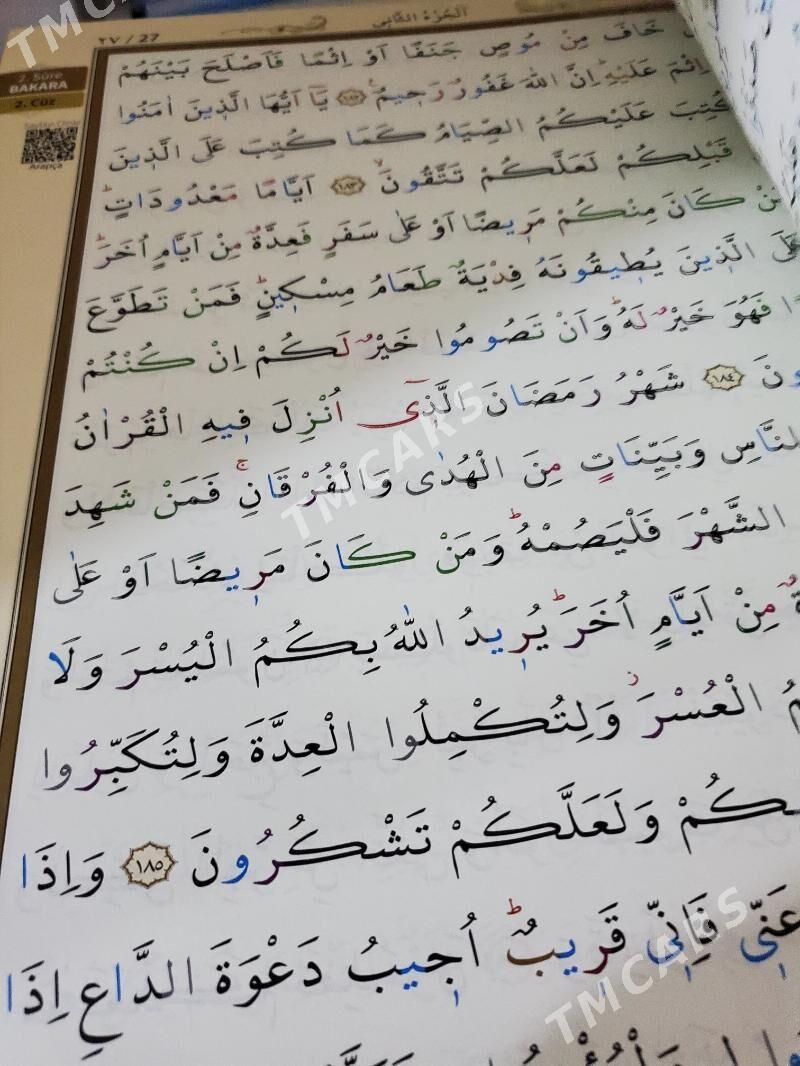 اَلْجُزْءُ الثَّانِي
٢٧ / 27
2. Sûre
BAKARA
2. Cüz
Arapça
خَافَ مِنْ مُوصٍ جَنَفًا اَوْ اِثْمًا فَاَصْلَحَ بَيْنَهُمْ
اِثْمَ عَلَيْهِۜ اِنَّ اللّٰهَ غَفُورٌ رَح۪يمٌ۟ ﴿١٨٢﴾ يَٓا اَيُّهَا الَّذ۪ينَ اٰمَنُوا
كُتِبَ عَلَيْكُمُ الصِّيَامُ كَمَا كُتِبَ عَلَى الَّذ۪ينَ
قَبْلِكُمْ لَعَلَّكُمْ تَتَّقُونَۙ ﴿١٨٣﴾ اَيَّامًا مَعْدُودَاتٍۜ
كَانَ مِنْكُمْ مَر۪يضًا اَوْ عَلٰى سَفَرٍ فَعِدَّةٌ مِنْ اَيَّامٍ اُخَرَۜ
الَّذ۪ينَ يُط۪يقُونَهُ فِدْيَةٌ طَعَامُ مِسْك۪ينٍۜ فَمَنْ تَطَوَّعَ
فَهُوَ خَيْرٌ لَهُۜ وَاَنْ تَصُومُوا خَيْرٌ لَكُمْ اِنْ كُنْتُمْ
﴿١٨٤﴾ شَهْرُ رَمَضَانَ الَّذ۪ٓي اُنْزِلَ ف۪يهِ الْقُرْاٰنُ
لنَّاسِ وَبَيِّنَاتٍ مِنَ الْهُدٰى وَالْفُرْقَانِۚ فَمَنْ شَهِدَ
الشَّهْرَ فَلْيَصُمْهُۜ وَمَنْ كَانَ مَر۪يضًا اَوْ عَلٰى
مِنْ اَيَّامٍ اُخَرَۜ يُر۪يدُ اللّٰهُ بِكُمُ الْيُسْرَ وَلَا
الْعُسْرَۘ وَلِتُكْمِلُوا الْعِدَّةَ وَلِتُكَبِّرُوا
ـكُمْ وَلَعَلَّكُمْ تَشْكُرُونَ ﴿١٨٥﴾ وَاِذَا
عَنّ۪ي فَاِنّ۪ي قَر۪يبٌۜ اُج۪يبُ دَعْوَةَ الدَّاعِ اِذَا
TMCARS
TMCARS
TMCARS